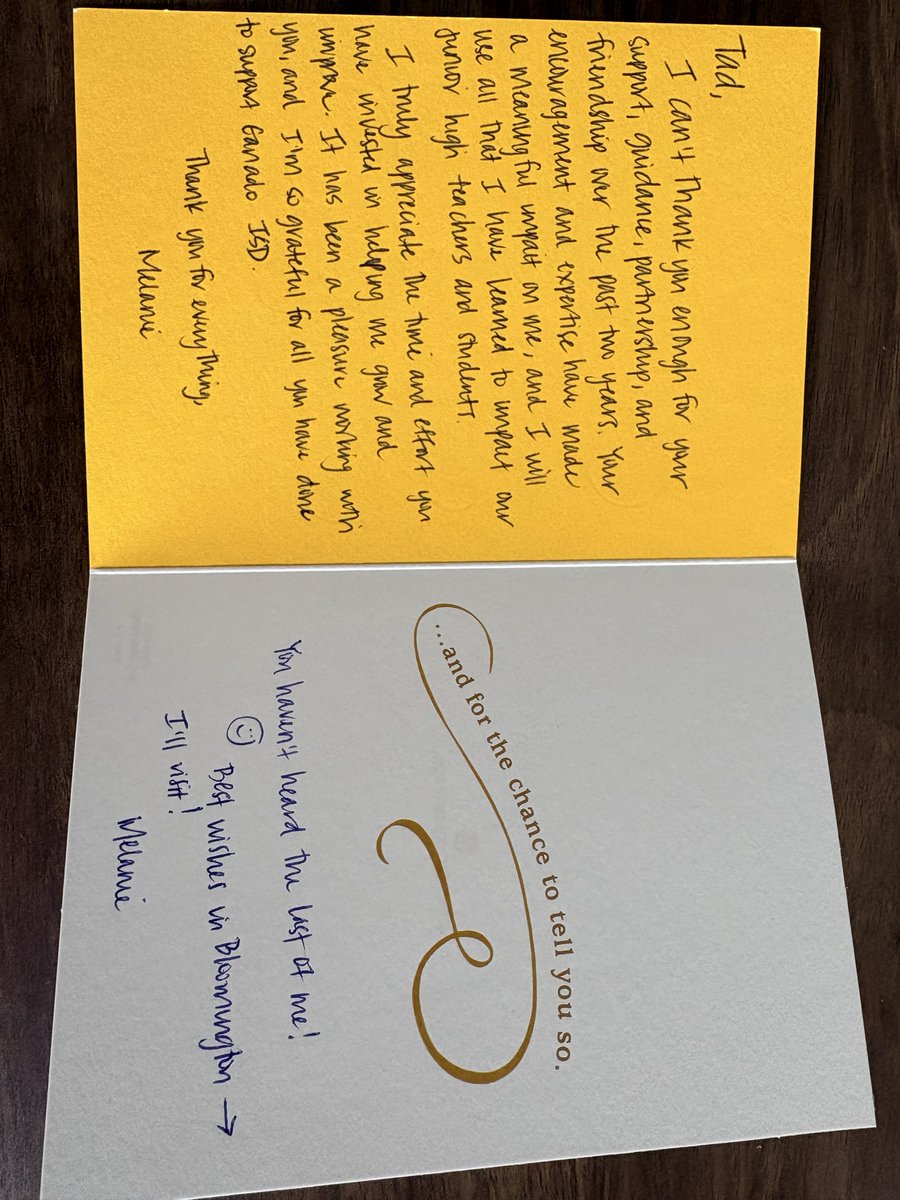 Tad,
I can't thank you enough for your
support, guidance, partnership, and
friendship over the past two years. Your
encouragement and expertise have made
a meaningful impact on me, and I will
use all that I have learned to impact our
junior high teachers and students.
I truly appreciate the time and effort you
have invested in helping me grow and
improve. It has been a pleasure working with
you, and I'm so grateful for all you have done
to support Ganado ISD.
Thank you for everything,
Melanie
...and for the chance to tell you so.
You haven't heard the last of me!
☺ Best wishes in Bloomington →
I'll visit!
Melanie